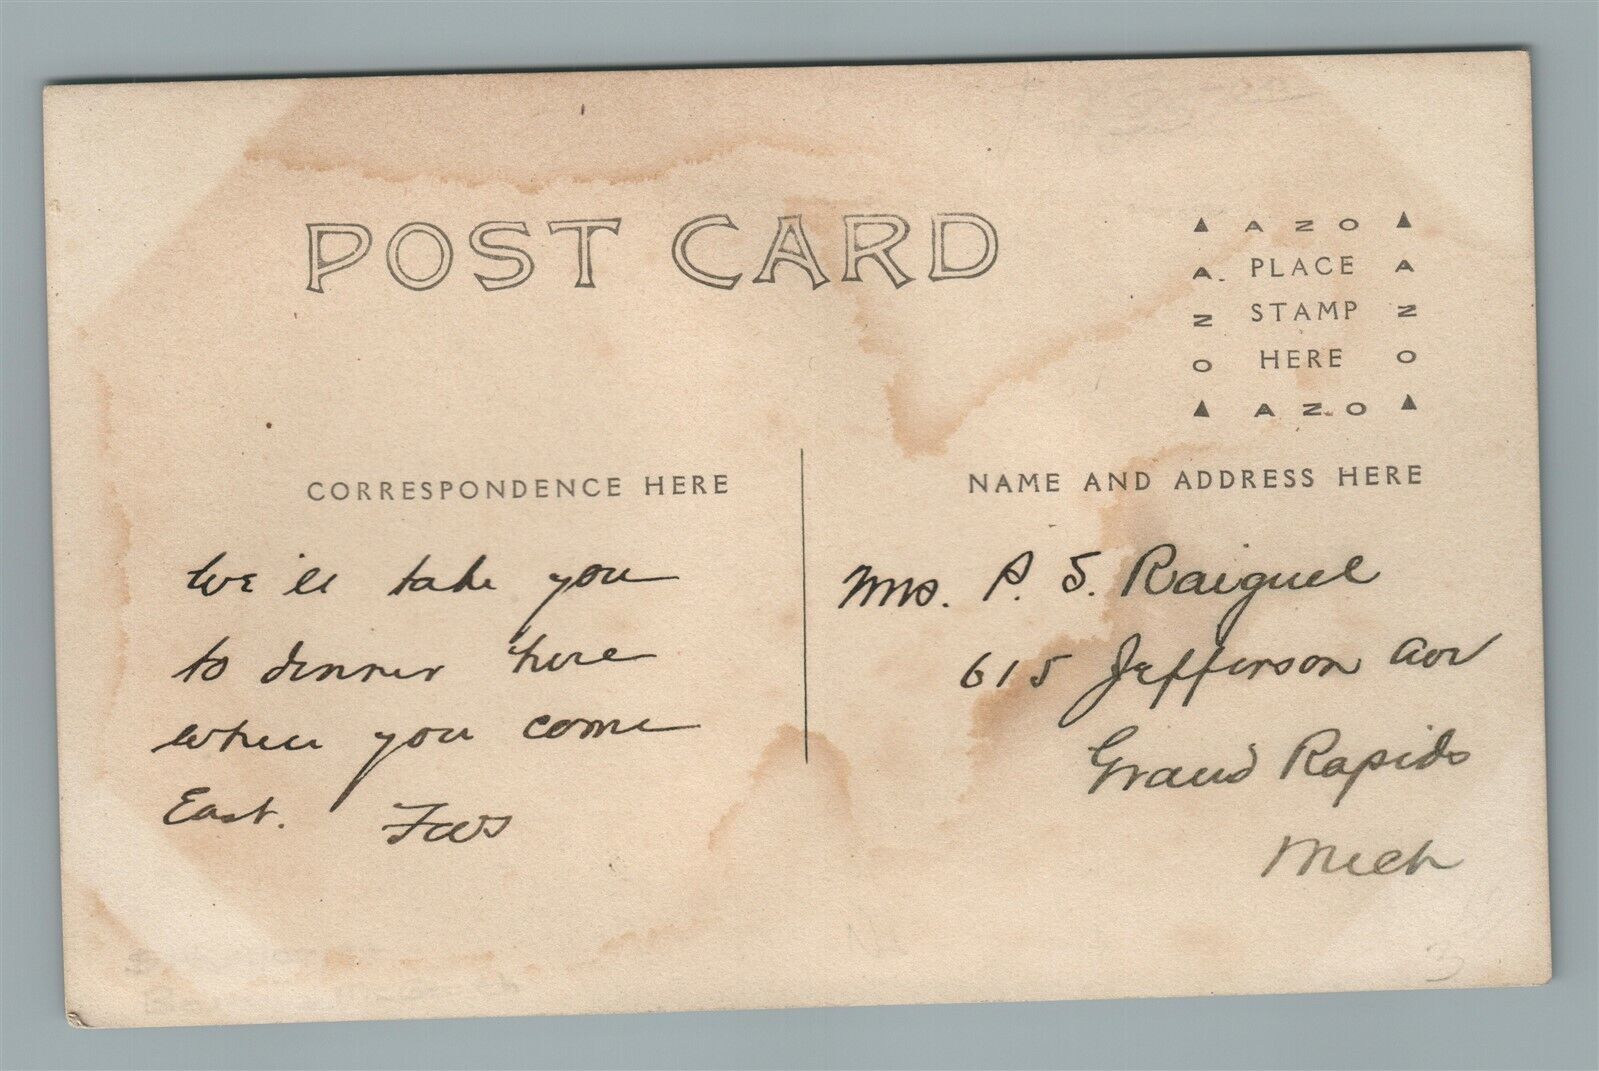 POST CARD
▲ AZO ▲
A PLACE A
N STAMP N
O HERE O
▲ AZO ▲
CORRESPONDENCE HERE
NAME AND ADDRESS HERE
We'll take you
to dinner here
when you come
East.
Mrs. P. S. Raiguel
615 Jefferson Ave
Grand Rapids
Mich